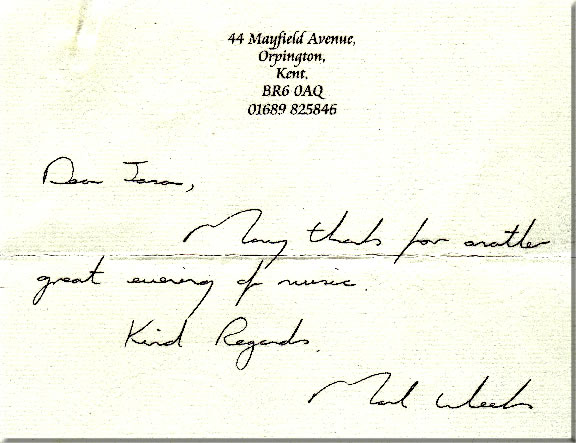 44 Mayfield Avenue,
Orpington,
Kent.
BR6 0AQ
01689 825846
Dear
Many thanks for another
great evening of music.
Kind Regards.
Mark